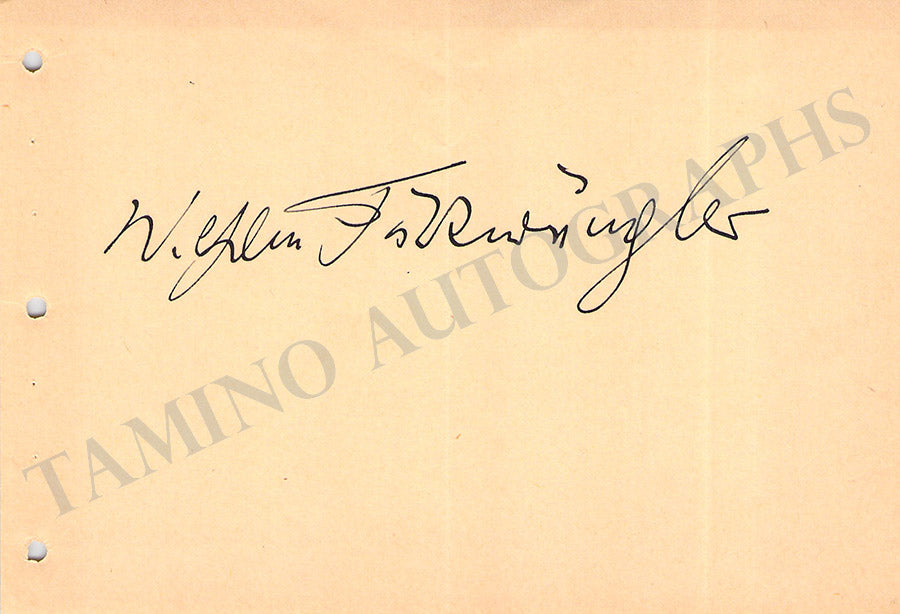 Wilhelm Furtwängler
TAMINO AUTOGRAPHS